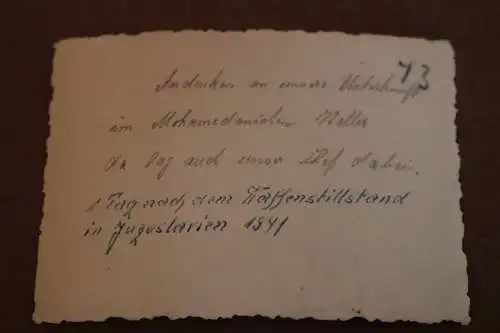 73
Andenken an unsere Unterkunft
im Mohamedanischen Keller
da lag auch unser Chef dabei.
1 Tag nach dem Waffenstillstand
in Jugoslavien 1941